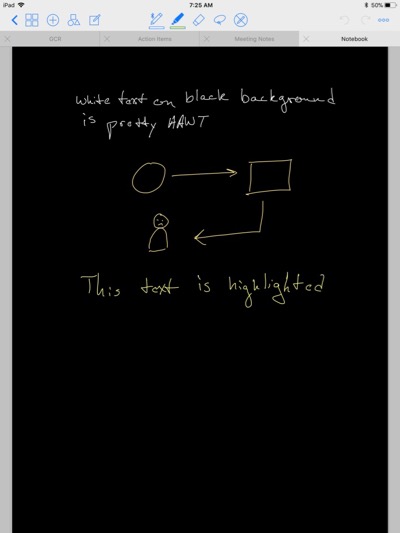 iPad 7:25 AM 50%
GCR Action Items Meeting Notes Notebook
White text on black background
is pretty HAWT
This text is highlighted